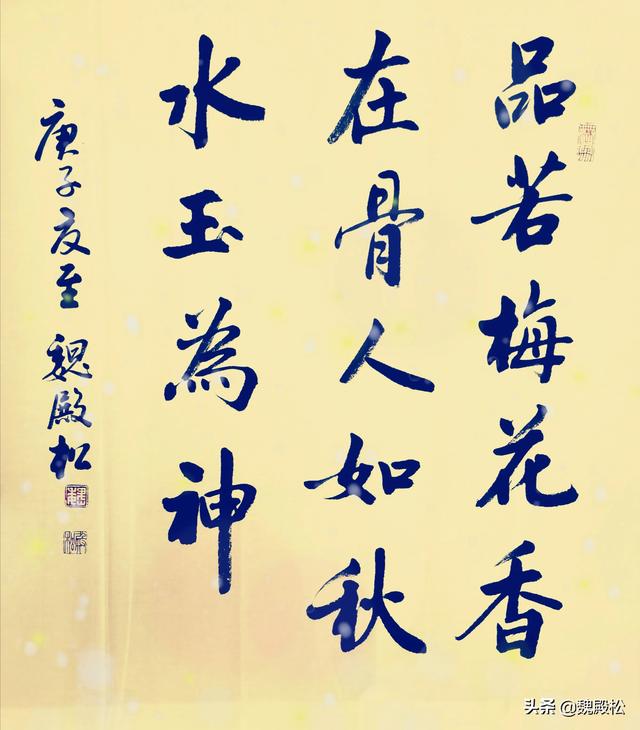 品若梅花香
在骨人如秋
水玉為神
庚子夏至 魏殿松
头条 @魏殿松